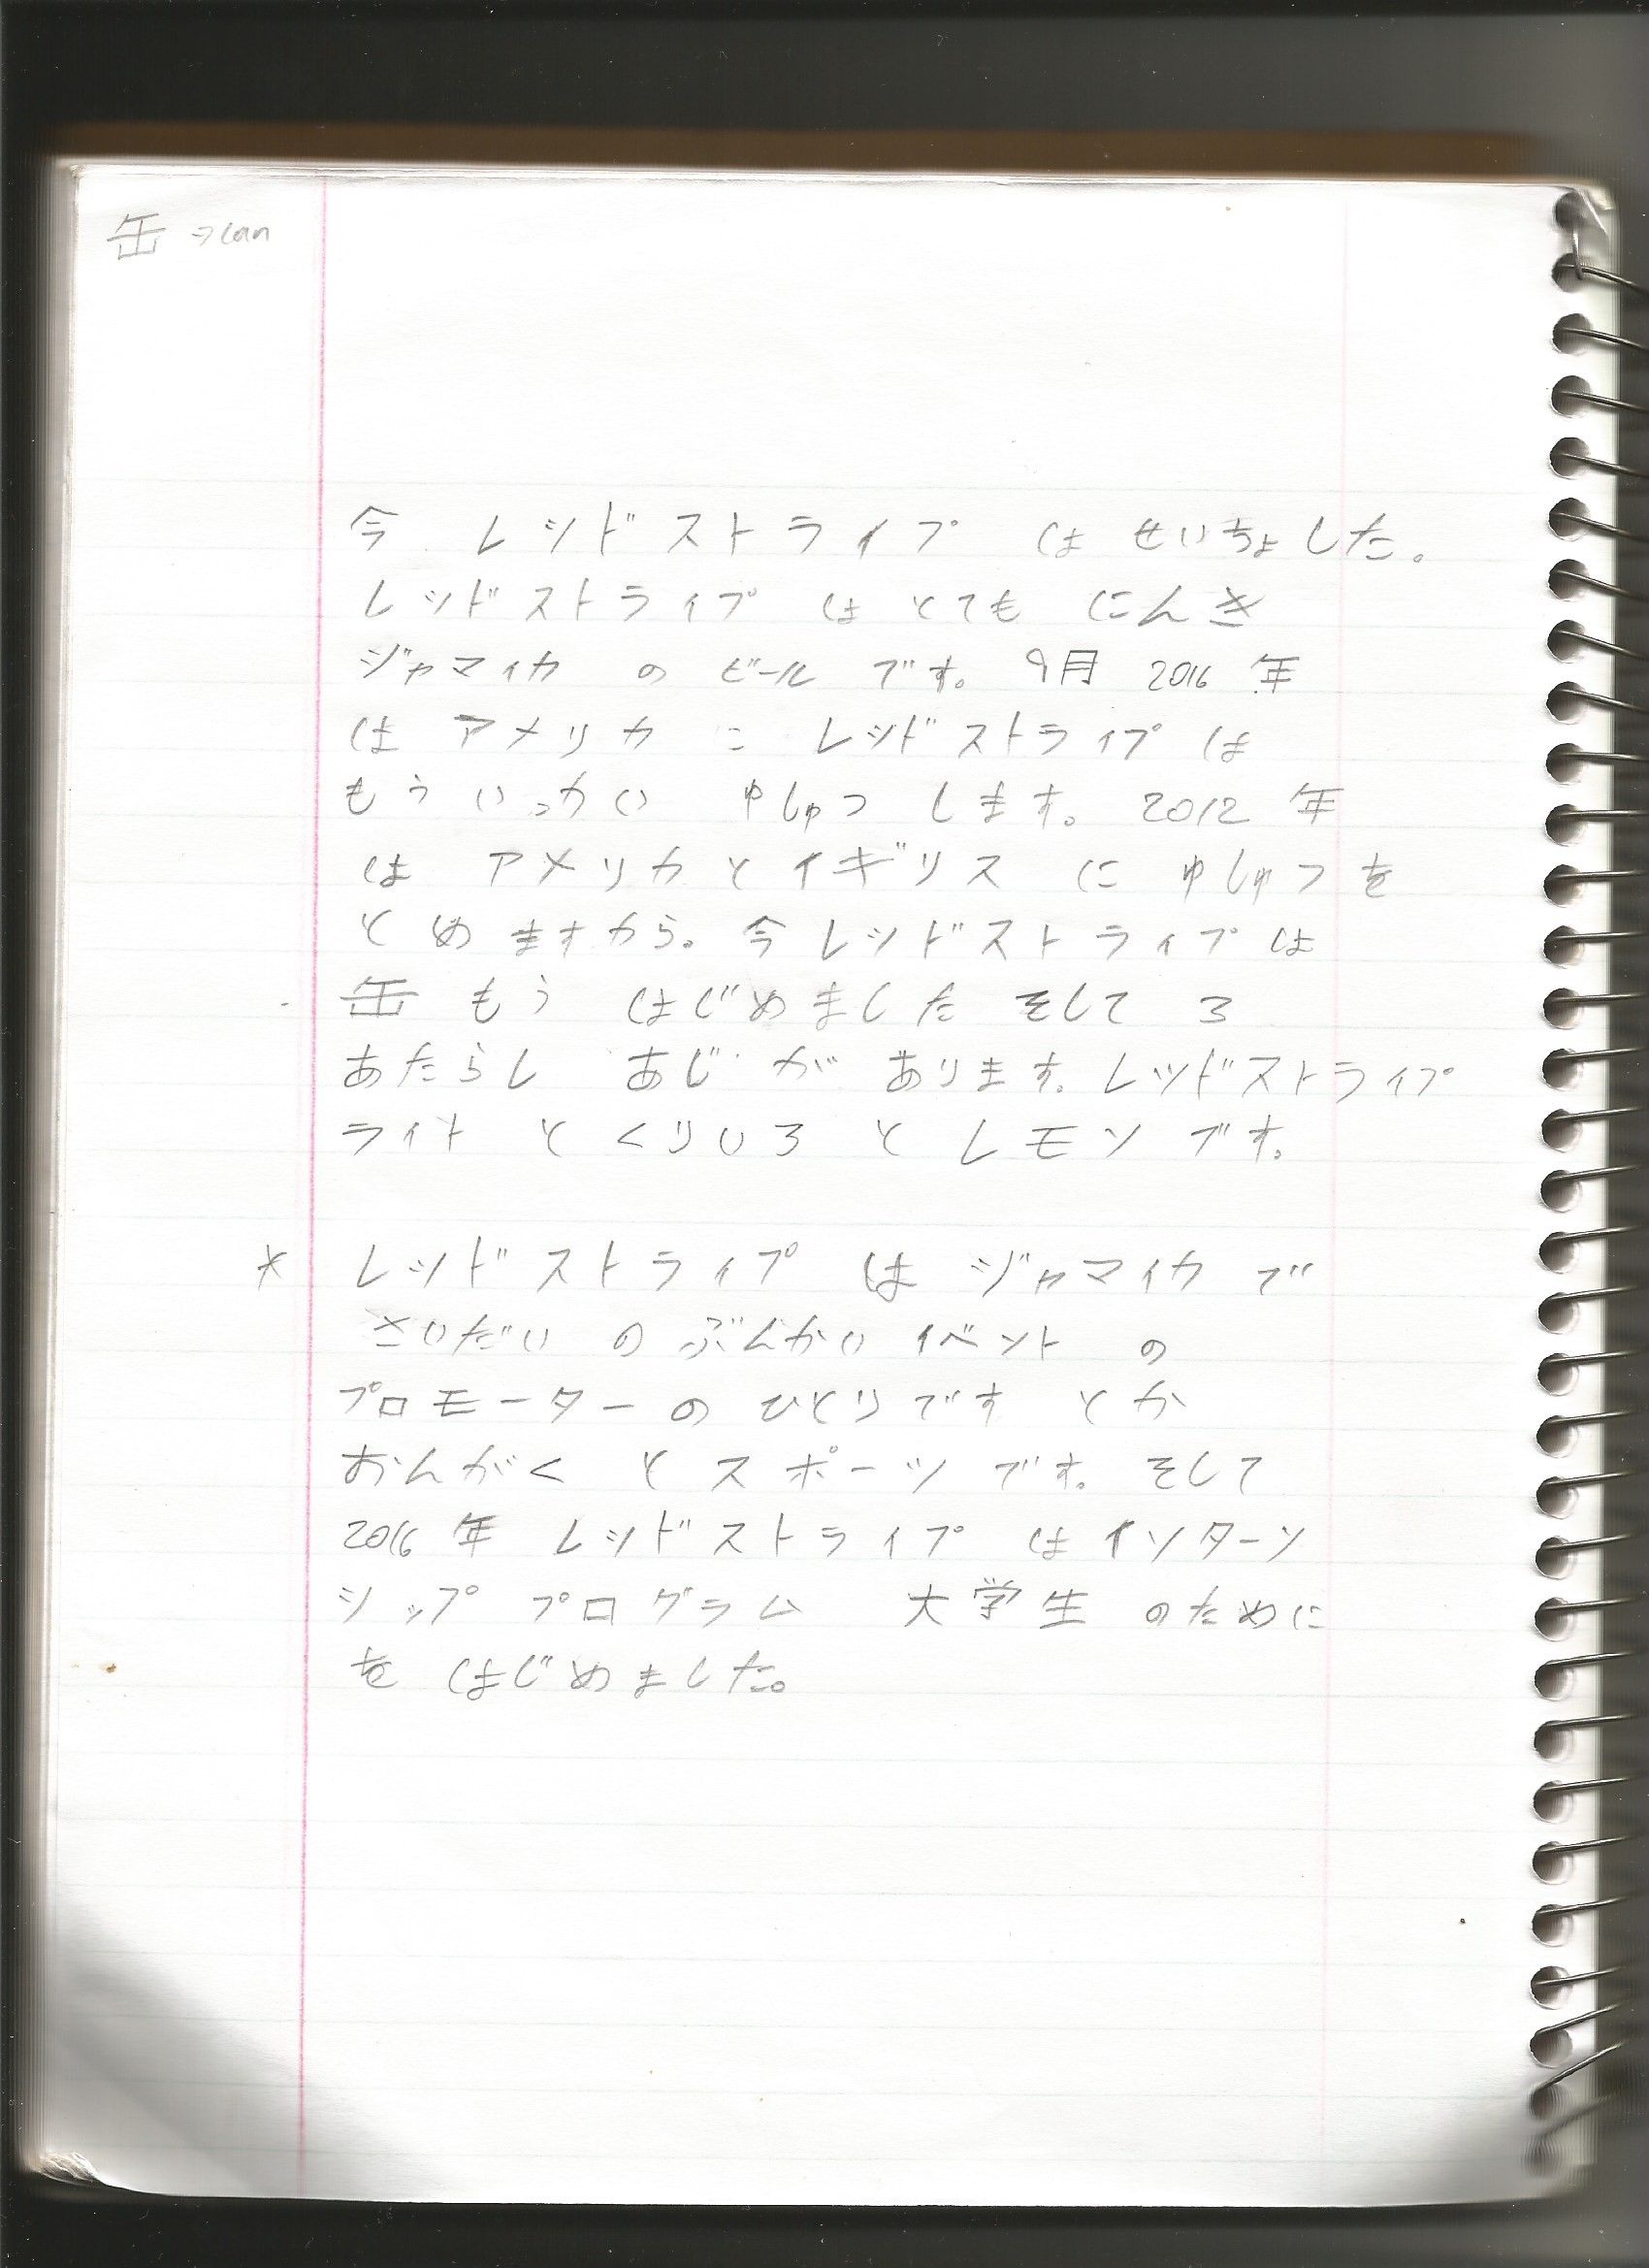 缶 →can
今 レッドストライプ は せいちょした。
レッドストライプ は とても にんき
ジャマイカ の ビール です。 9月 2016 年
は アメリカ に レッドストライプ は
もう いっかい ゆしゅつ します。 2012 年
は アメリカ と イギリス に ゆしゅつ を
とめますから。 今 レッドストライプ は
缶 もう はじめました そして 3
あたらし あじ が あります。 レッドストライプ
ライト と くりいろ と レモン です。
* レッドストライプ は ジャマイカ で
さいだい の ぶんかい イベント の
プロモーター の ひとりです とか
おんがく と スポーツ です。 そして
2016 年 レッドストライプ は インターン
シップ プログラム 大学生 のために
を はじめました。